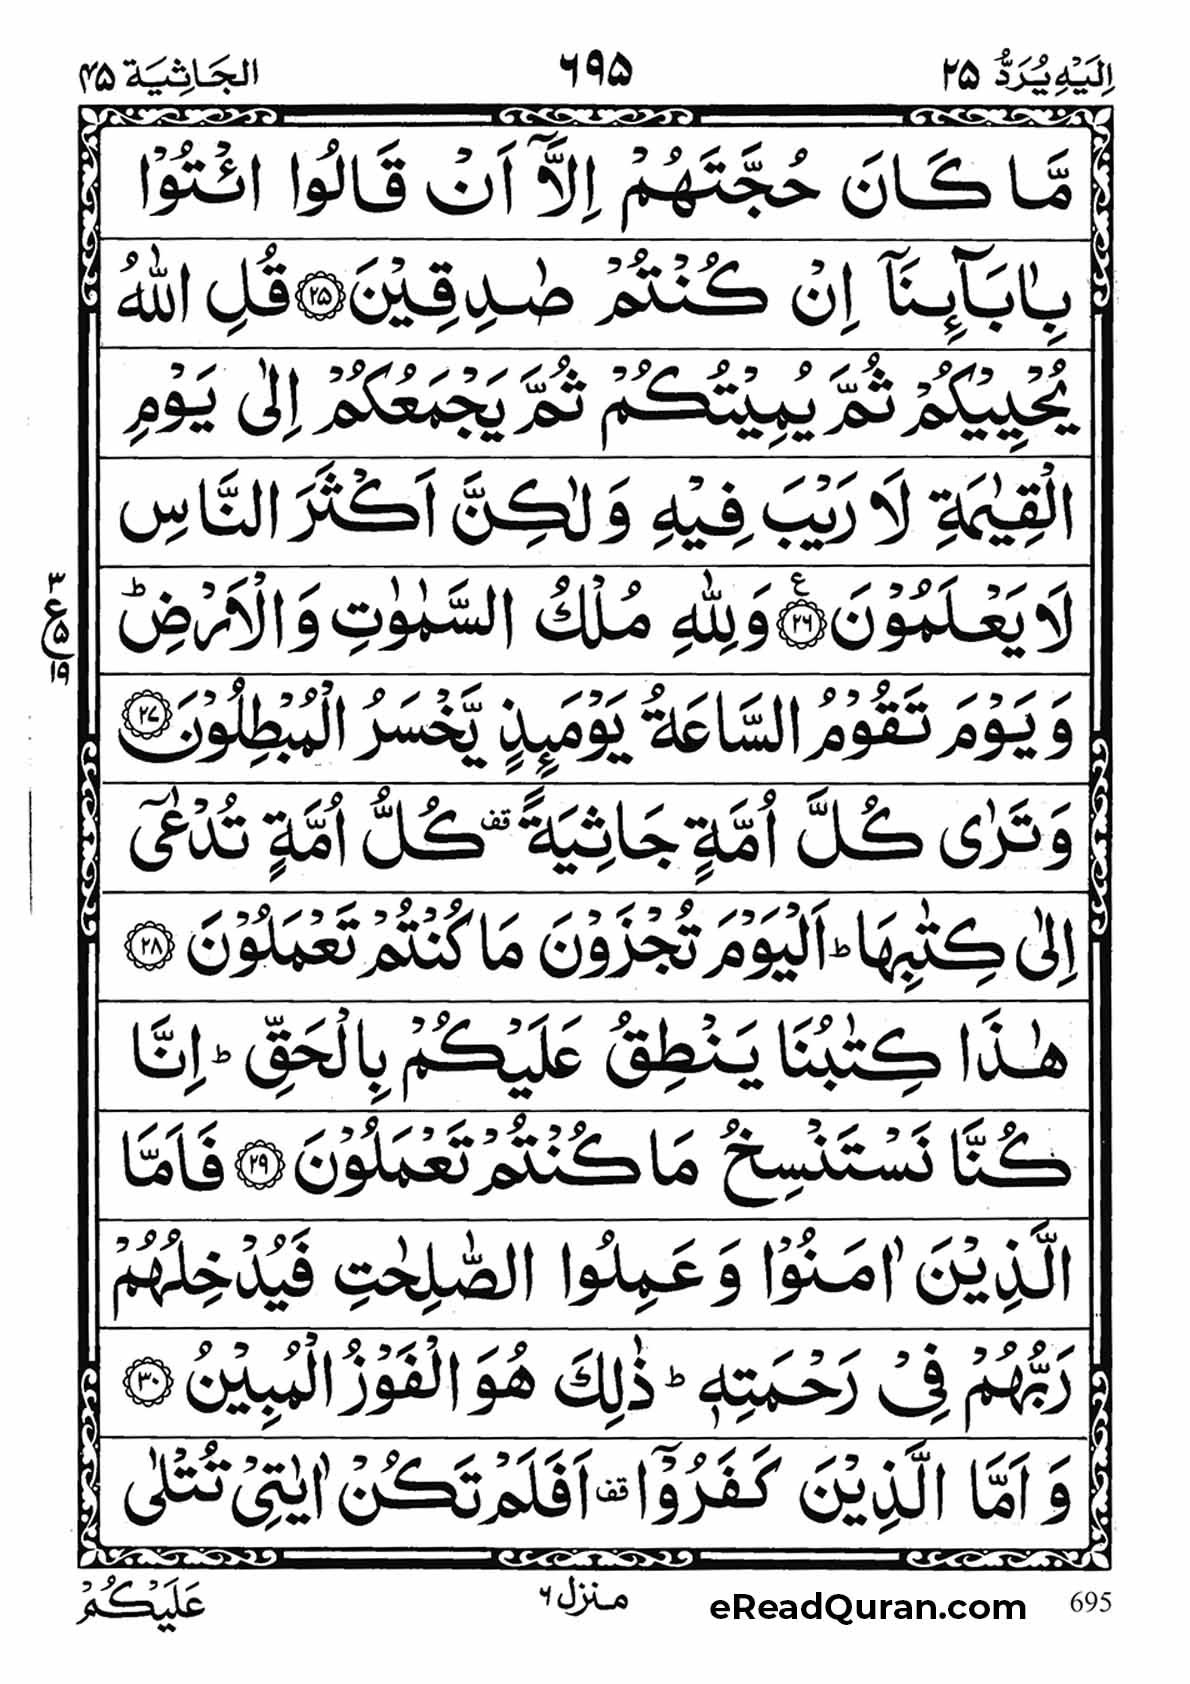 اِلَيْهِ يُرَدُّ ٢٥
٦٩٥
الجَاثِيَة ٤٥
مَّا كَانَ حُجَّتَهُمْ اِلَّاۤ اَنْ قَالُوا ائْتُوْا
بِاٰبَآئِنَاۤ اِنْ كُنْتُمْ صٰدِقِيْنَ ﴿٢٥﴾ قُلِ اللّٰهُ
يُحْيِيْكُمْ ثُمَّ يُمِيْتُكُمْ ثُمَّ يَجْمَعُكُمْ اِلٰى يَوْمِ
الْقِيٰمَةِ لَا رَيْبَ فِيْهِ وَلٰكِنَّ اَكْثَرَ النَّاسِ
لَا يَعْلَمُوْنَ ﴿٢٦﴾ ع وَلِلّٰهِ مُلْكُ السَّمٰوٰتِ وَالْاَرْضِ ؕ
٣
ع ٥
١٩
وَيَوْمَ تَقُوْمُ السَّاعَةُ يَوْمَئِذٍ يَّخْسَرُ الْمُبْطِلُوْنَ ﴿٢٧﴾
وَتَرٰى كُلَّ اُمَّةٍ جَاثِيَةً قف كُلُّ اُمَّةٍ تُدْعٰۤى
اِلٰى كِتٰبِهَا ؕ اَلْيَوْمَ تُجْزَوْنَ مَا كُنْتُمْ تَعْمَلُوْنَ ﴿٢٨﴾
هٰذَا كِتٰبُنَا يَنْطِقُ عَلَيْكُمْ بِالْحَقِّ ؕ اِنَّا
كُنَّا نَسْتَنْسِخُ مَا كُنْتُمْ تَعْمَلُوْنَ ﴿٢٩﴾ فَاَمَّا
الَّذِيْنَ اٰمَنُوْا وَعَمِلُوا الصّٰلِحٰتِ فَيُدْخِلُهُمْ
رَبُّهُمْ فِيْ رَحْمَتِهٖ ؕ ذٰلِكَ هُوَ الْفَوْزُ الْمُبِيْنُ ﴿٣٠﴾
وَاَمَّا الَّذِيْنَ كَفَرُوْۤا قف اَفَلَمْ تَكُنْ اٰيٰتِيْ تُتْلٰى
عَلَيْكُمْ
منزل ٦
eReadQuran.com
695